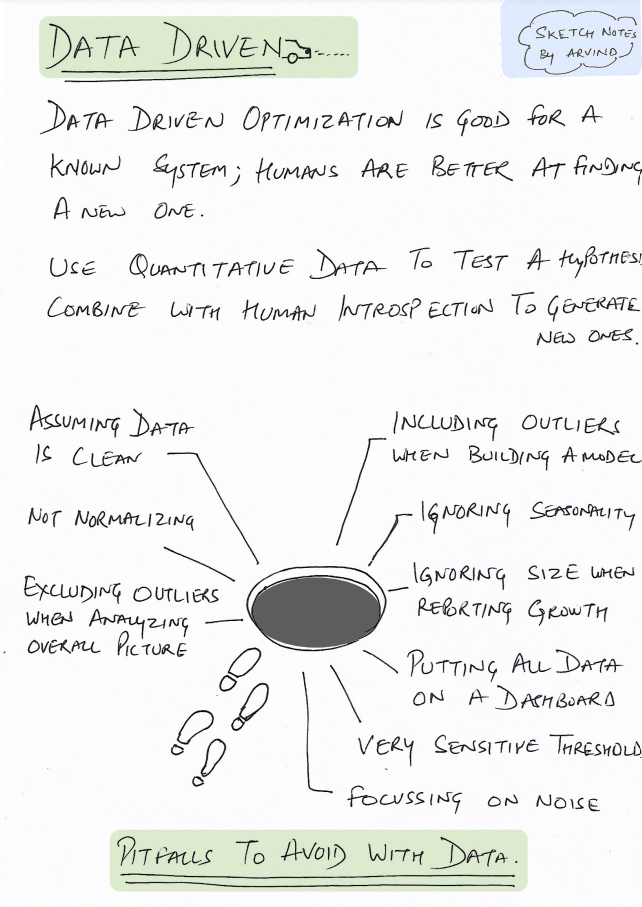 DATA DRIVEN
SKETCH NOTES
BY ARVIND
DATA DRIVEN OPTIMIZATION IS GOOD FOR A
KNOWN SYSTEM; HUMANS ARE BETTER AT FINDING
A NEW ONE.
USE QUANTITATIVE DATA TO TEST A HYPOTHESI
COMBINE WITH HUMAN INTROSPECTION TO GENERATE
NEW ONES.
ASSUMING DATA
IS CLEAN
NOT NORMALIZING
EXCLUDING OUTLIERS
WHEN ANALYZING
OVERALL PICTURE
INCLUDING OUTLIERS
WHEN BUILDING A MODEL
IGNORING SEASONALITY
IGNORING SIZE WHEN
REPORTING GROWTH
PUTTING ALL DATA
ON A DASHBOARD
VERY SENSITIVE THRESHOLD
FOCUSSING ON NOISE
PITFALLS TO AVOID WITH DATA.